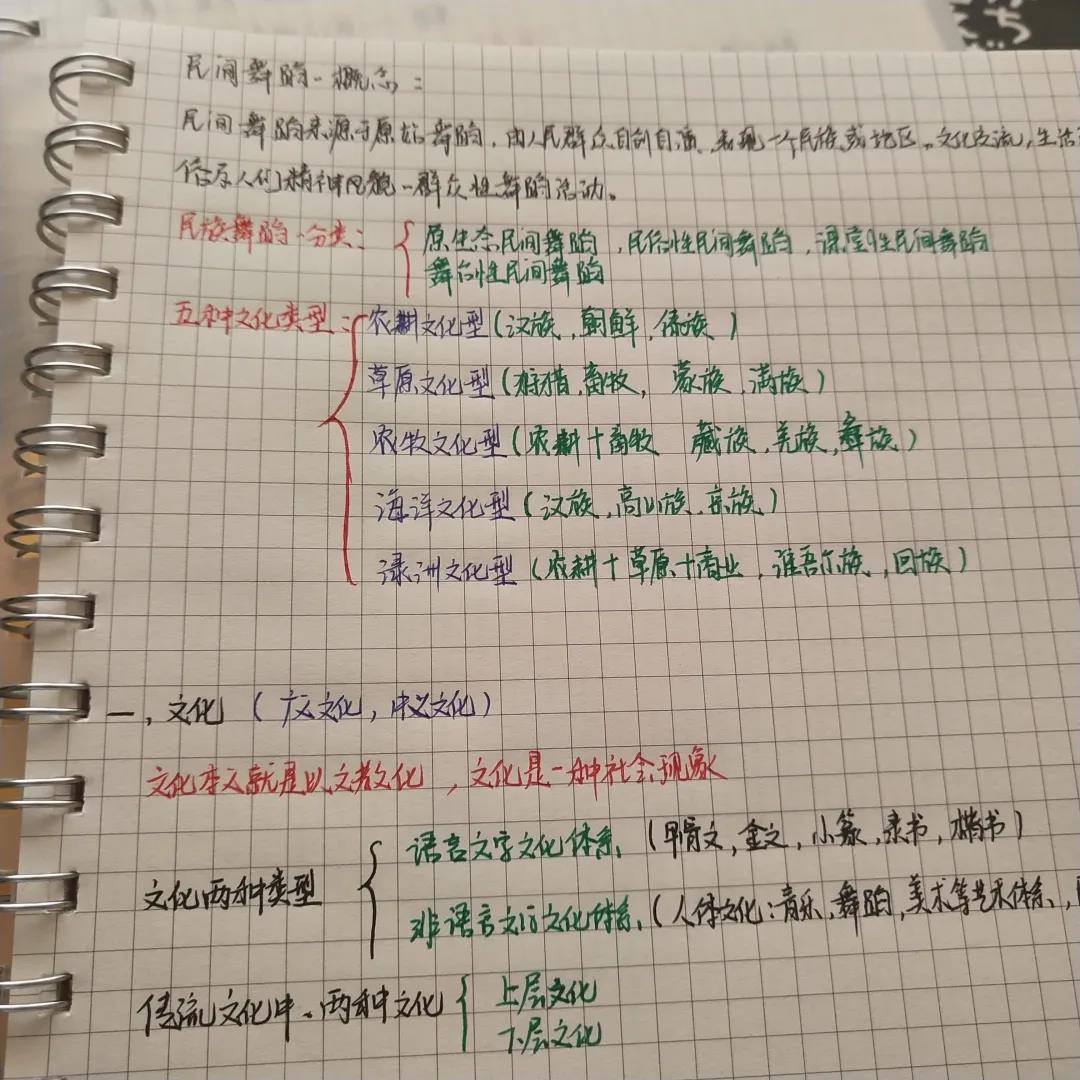 民间舞蹈、概念：
民间舞蹈来源于原始舞蹈，由人民群众自创自演、表现一个民族或地区、文化交流，生活
俗尽人们精神风貌、群众性舞蹈活动。
民族舞蹈、分类：
原生态民间舞蹈，民俗性民间舞蹈，课堂性民间舞蹈
舞台性民间舞蹈
五种文化类型：
农耕文化型（汉族，朝鲜，傣族）
草原文化型（狩猎，畜牧，蒙族，满族）
农牧文化型（农耕+畜牧 藏族，羌族，彝族）
海洋文化型（汉族，高山族，京族）
绿洲文化型（农耕+草原+商业，维吾尔族，回族）
一，文化（广义文化，中义文化）
文化本义就是以文教文化，文化是一种社会现象
文化两种类型
语言文字文化体系，（甲骨文，金文，小篆，隶书，楷书）
非语言文字文化体系，（人体文化：音乐，舞蹈，美术等艺术体系，
传统文化中、两种文化
上层文化
下层文化